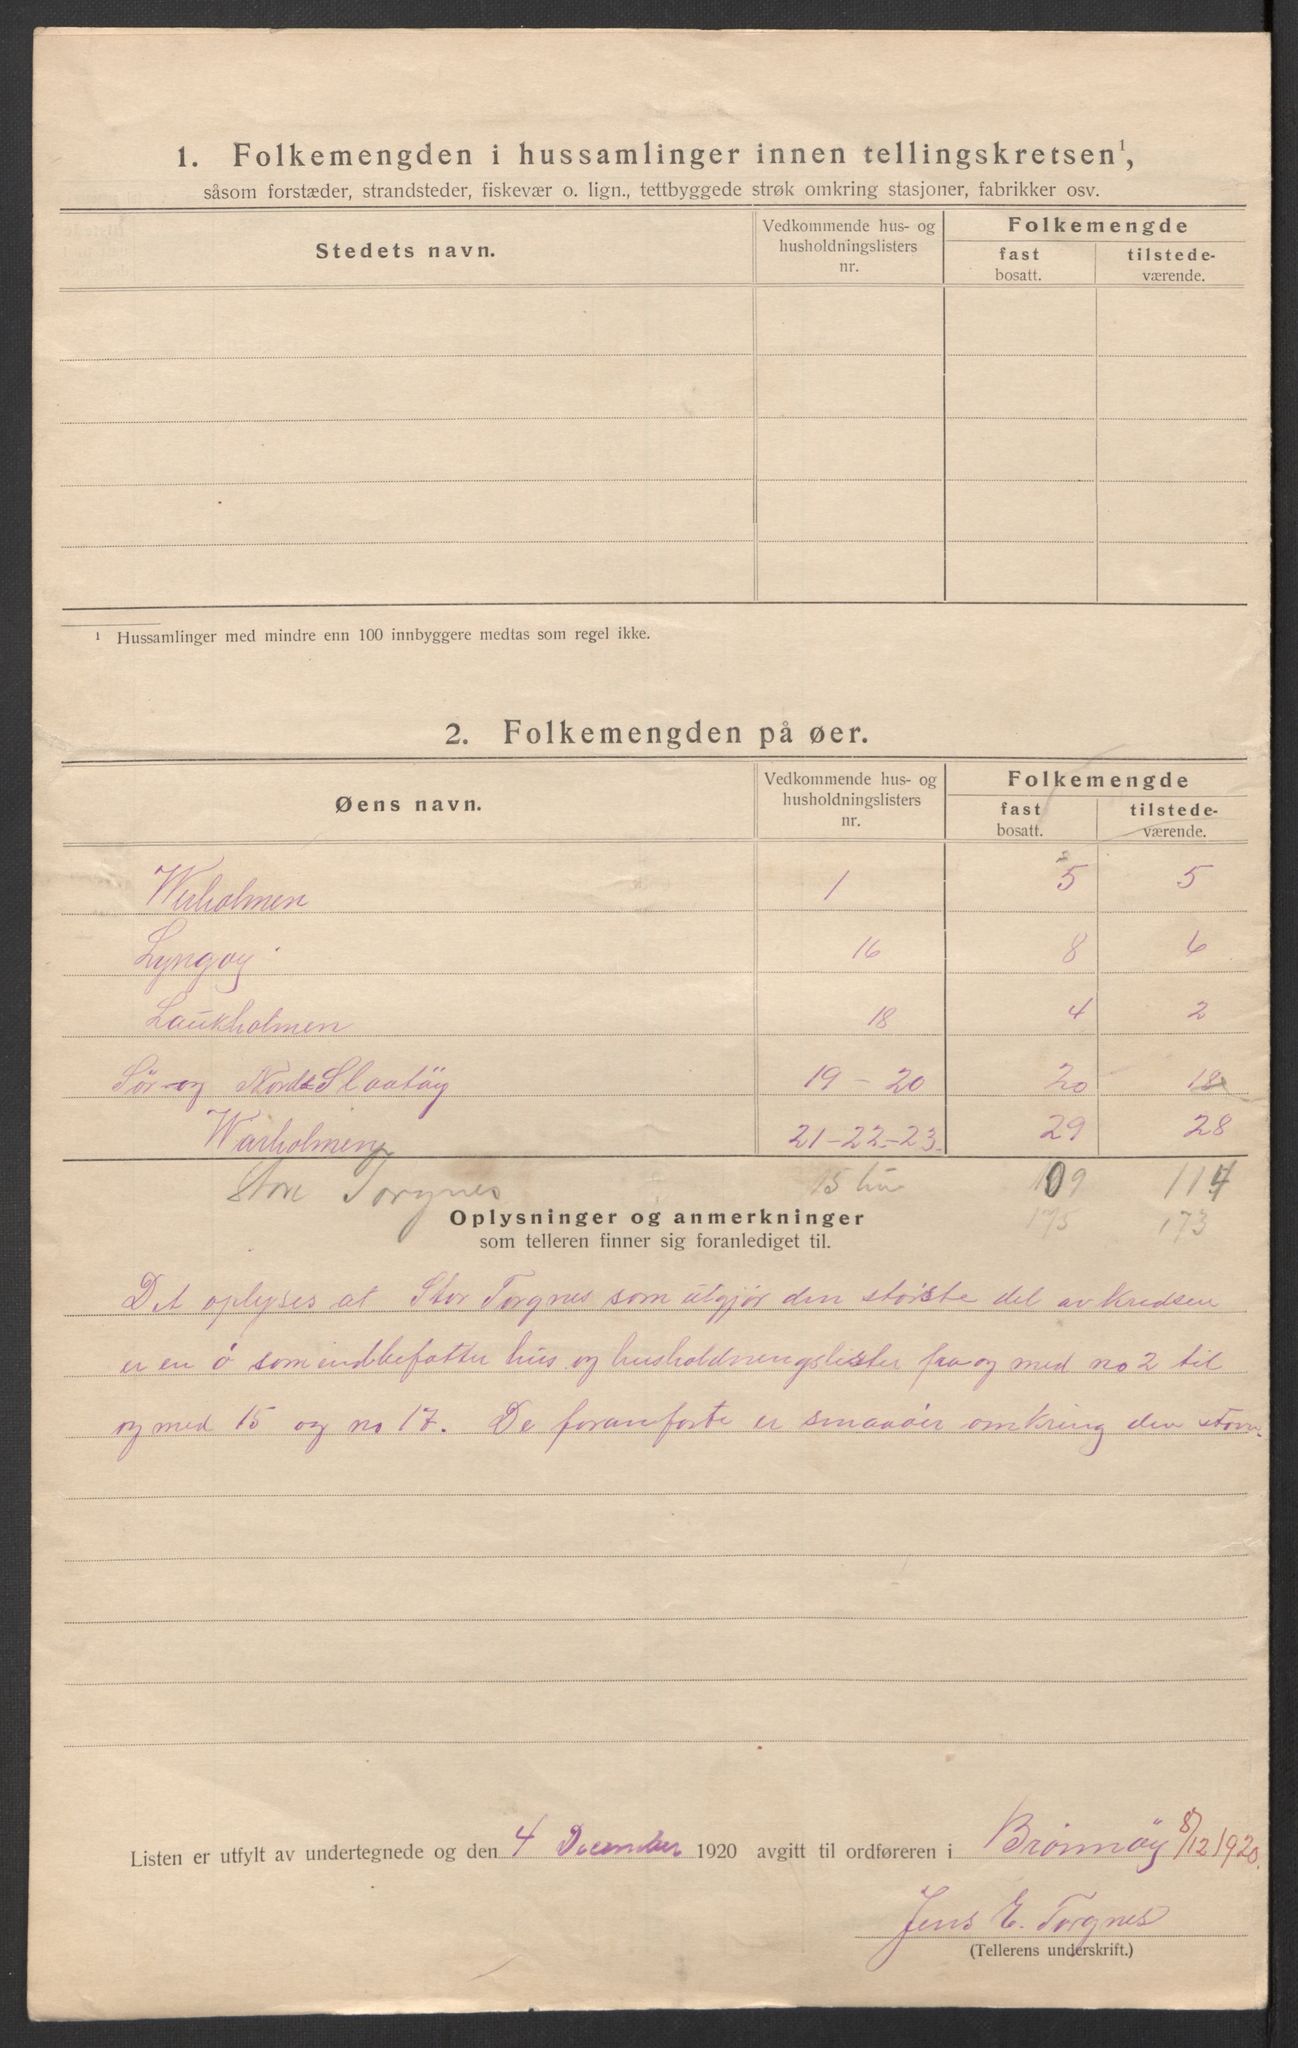 1. Folkemengden i hussamlinger innen tellingskretsen¹,
såsom forstæder, strandsteder, fiskevær o. lign., tettbyggede strøk omkring stasjoner, fabrikker osv.
Stedets navn. Vedkommende hus- og husholdningslisters nr. Folkemengde
fast bosatt. tilstede-værende.
¹ Hussamlinger med mindre enn 100 innbyggere medtas som regel ikke.
2. Folkemengden på øer.
Øens navn. Vedkommende hus- og husholdningslisters nr. Folkemengde
fast bosatt. tilstede-værende.
Werholmen 1 5 5
Lyngøy 16 8 6
Laukholmen 18 4 2
Sör og Nord Slaatöy 19-20 20 18
Warholmen 21-22-23. 29 28
Stor Torgnes 15 109 114
175 173
Oplysninger og anmerkninger
som telleren finner sig foranlediget til.
Det oplyses at Stor Torgnes som utgjør den störste del av Kredsen
er en ö som indbefatter hus og husholdningslister fra og med no 2 til
og med 15 og no 17. De foranförte er smaaöer omkring den store.
Listen er utfylt av undertegnede og den 4 December 1920 avgitt til ordføreren i Brönnöy 8/12 1920.
Jens E. Torgnes
(Tellerens underskrift.)